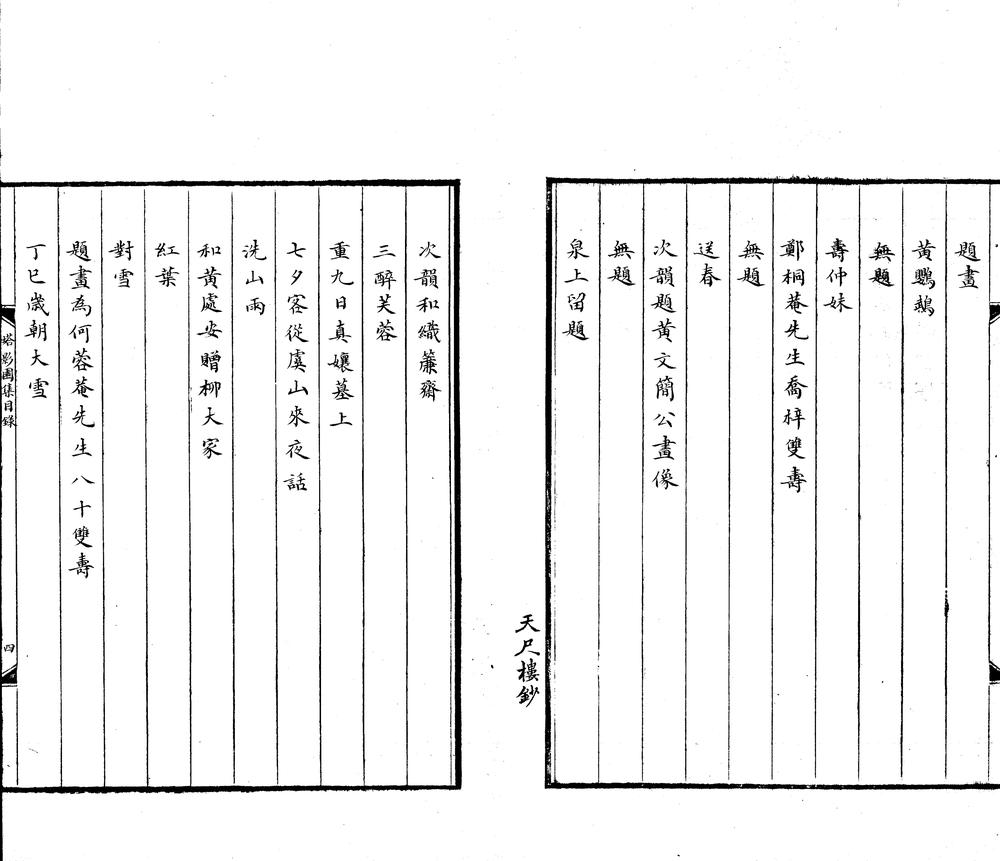 題畫
黃鸚鵡
無題
壽仲妹
鄭桐菴先生喬梓雙壽
無題
送春
次韻題黃文簡公畫像
無題
泉上留題
天尺樓鈔
次韻和織簾齋
三醉芙蓉
重九日真孃墓上
七夕客從虞山來夜話
洗山雨
和黃處安贈柳大家
紅葉
對雪
題畫為何蓉菴先生八十雙壽
丁巳歲朝大雪
塔影園集目錄
四